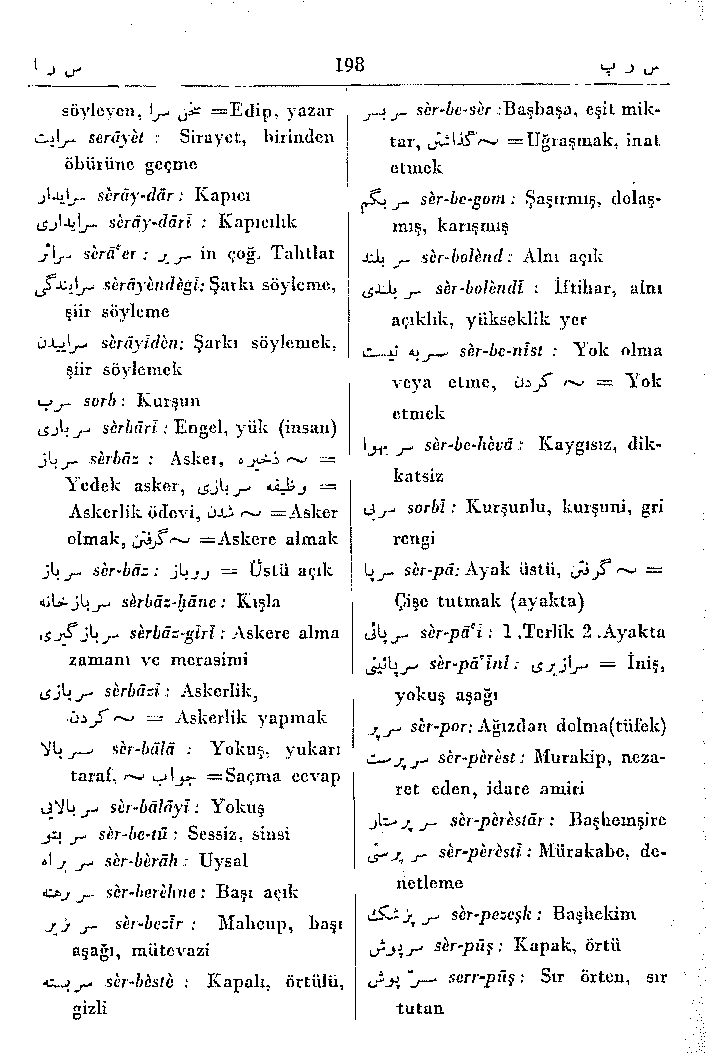 س ر ا
198
س ر پ
söyleyen, سخن سرا =Edip, yazar
سرایت serāyèt : Sirayet, birinden
öbürüne geçme
سرایدار serāy-dār : Kapıcı
سرایداری serāy-dārī : Kapıcılık
سرائر sèrā'er : سریر in çoğ. Tahtlar
سرایندگی sèrāyèndègī: Şarkı söyleme,
şiir söyleme
سراییدن sèrāyīdèn: Şarkı söylemek,
şiir söylemek
سرب sorb : Kurşun
سرباری sèrbārī : Engel, yük (insan)
سرباز sèrbāz : Asker, ذخیره ~ =
Yedek asker, وظیفه سربازی =
Askerlik ödevi, شدن ~ =Asker
olmak, گرفتن ~ =Askere almak
سرباز sèr-bāz : روباز = Üstü açık
سربازخانه sèrbāz-ḫāne : Kışla
سرباز گیری sèrbāz-gīrī : Askere alma
zamanı ve merasimi
سربازی sèrbāzī : Askerlik,
کردن ~ = Askerlik yapmak
سربالا sèr-bālā : Yokuş, yukarı
taraf, جواب ~ =Saçma cevap
سربالایی sèr-bālāyī : Yokuş
سر بتو sèr-be-tū : Sessiz, sinsi
سر براه sèr-bèrāh : Uysal
سر برهنه sèr-berèhne : Başı açık
سر بزیر sèr-bezīr : Mahcup, başı
aşağı, mütevazi
سربسته sèr-bèstè : Kapalı, örtülü,
gizli
سر بسر sèr-be-sèr :Başbaşa, eşit mik-
tar, گذاشتن ~ =Uğraşmak, inat
etmek
سر بگم sèr-be-gom : Şaşırmış, dolaş-
mış, karışmış
سر بلند sèr-bolènd : Alnı açık
سر بلندی sèr-bolèndī : İftihar, alnı
açıklık, yükseklik yer
سر به نیست sèr-be-nīst : Yok olma
veya etme, کردن ~ = Yok
etmek
سر بهوا sèr-be-hèvā : Kaygısız, dik-
katsiz
سربی sorbī : Kurşunlu, kurşuni, gri
rengi
سرپا sèr-pā: Ayak üstü, گرفتن ~ =
Çişe tutmak (ayakta)
سرپائی sèr-pā'ī : 1.Terlik 2.Ayakta
سرپائینی sèr-pā'īnī : سرازیری = İniş,
yokuş aşağı
سرپر sèr-por: Ağızdan dolma(tüfek)
سرپرست sèr-pèrèst : Murakip, neza-
ret eden, idare amiri
سر پرستار sèr-pèrèstār : Başhemşire
سر پرستی sèr-pèrèstī : Mürakabe, de-
netleme
سر پزشک sèr-pezeşk : Başhekim
سرپوش sèr-pūş : Kapak, örtü
سرّ پوش serr-pūş : Sır örten, sır
tutan